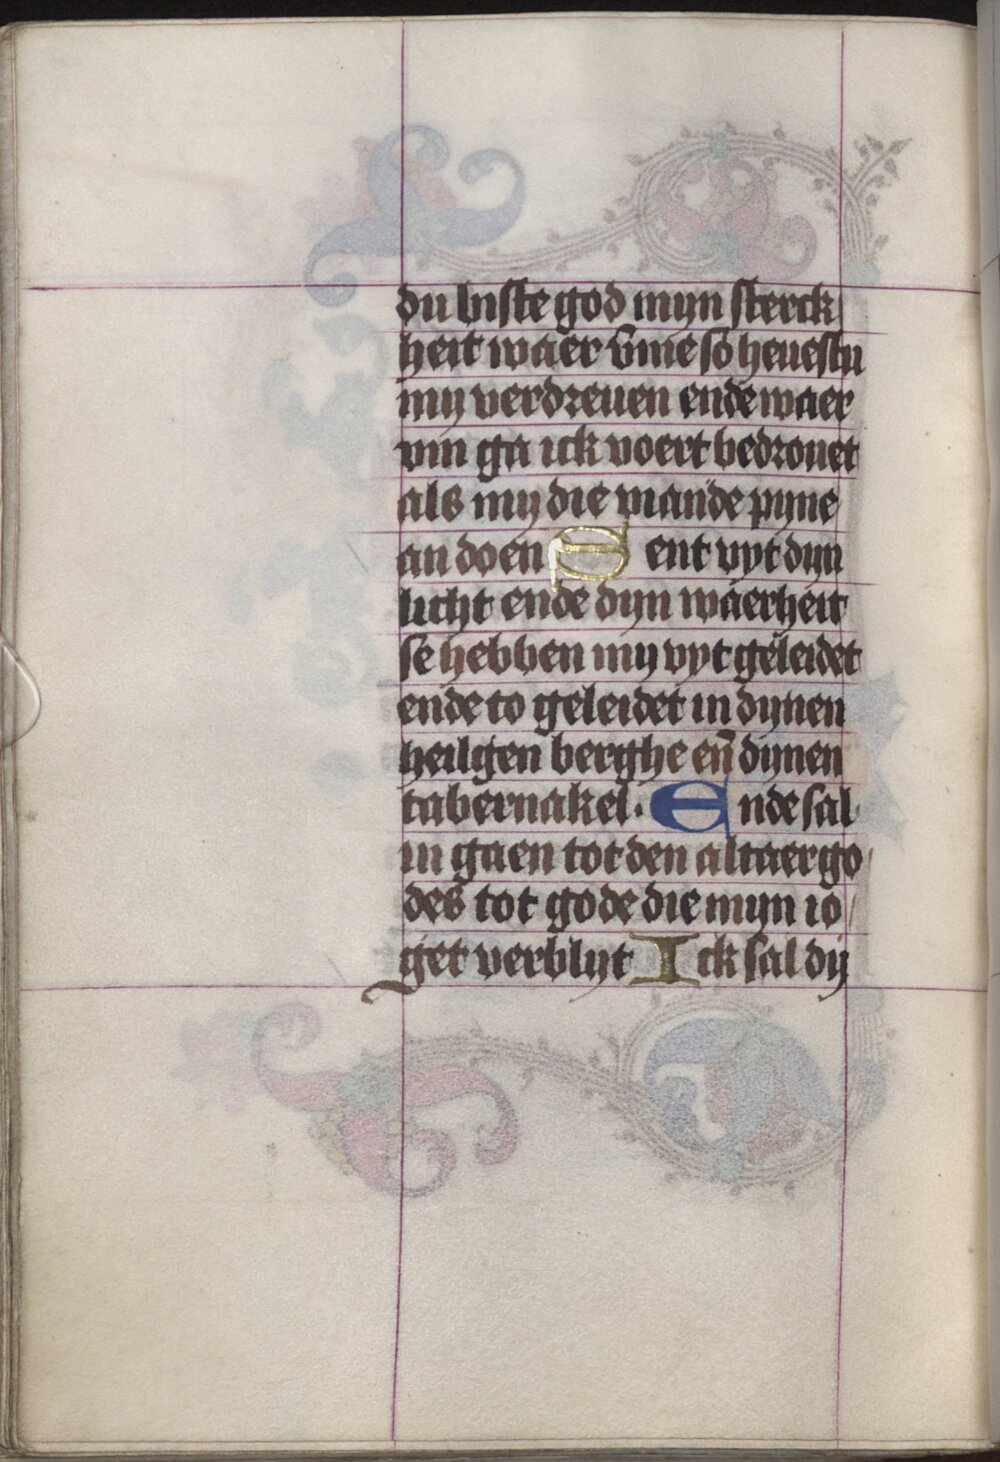 du biste god myn sterck
heit waer v̄me so heuestu
my verdreuen ende waer
vm ga ick voert bedrouet
als my die viande pyne
an doen Sent vyt dyn
licht ende dyn waerheit
se hebben my vyt geleidet
ende to geleidet in dynen
heilgen berghe en̄ dynen
tabernakel. Ende sal
in gaen tot den altaer go
des tot gode die myn io
get verblijt Ick sal dij